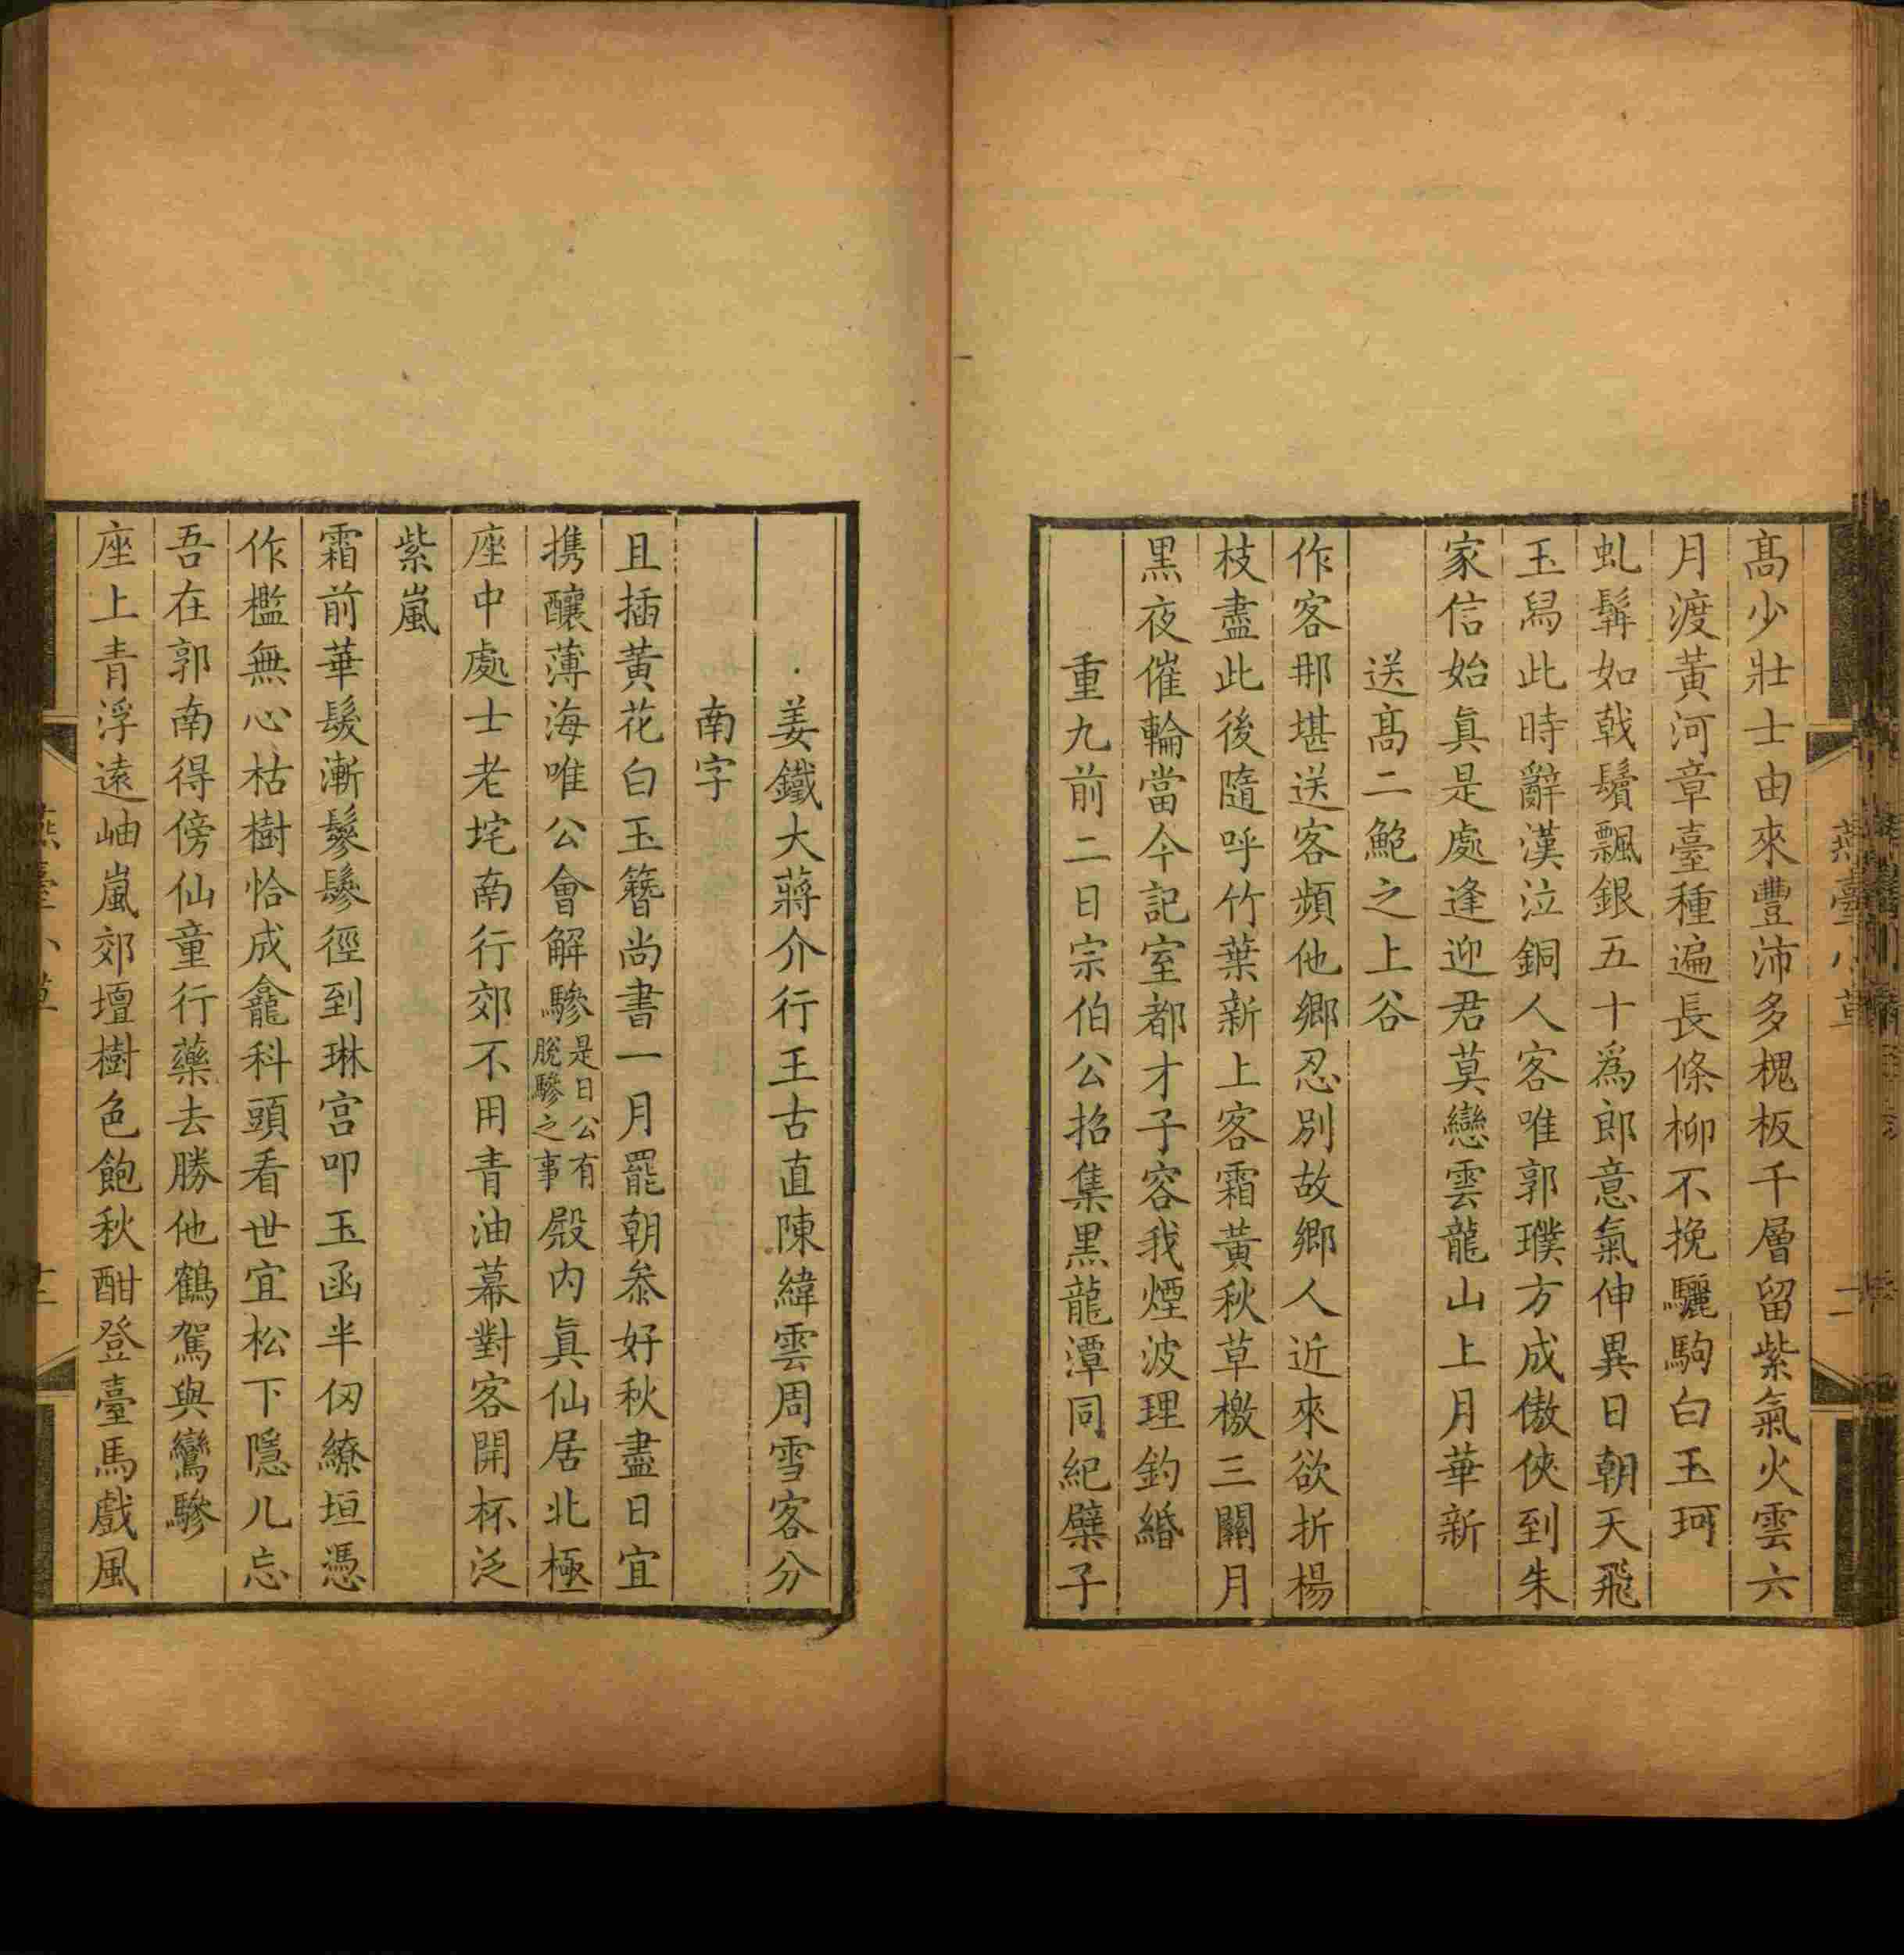 高少壯士由來豐沛多槐板千層留紫氣火雲六
月渡黃河章臺種遍長條柳不挽驪駒白玉珂
虬髯如戟鬢飄銀五十爲郎意氣伸異日朝天飛
玉舄此時辭漢泣銅人客唯郭璞方成傲俠到朱
家信始眞是處逢迎君莫戀雲龍山上月華新
送高二鮑之上谷
作客那堪送客頻他鄉忍別故鄉人近來欲折楊
枝盡此後隨呼竹葉新上客霜黃秋草檄三關月
黑夜催輪當今記室都才子容我煙波理釣緡
重九前二日宗伯公招集黑龍潭同紀檗子
姜鐵大蔣介行王古直陳緯雲周雪客分
南字
且插黃花白玉簪尚書一月罷朝叅好秋盡日宜
携釀薄海唯公會解驂是日公有脫驂之事殿内眞仙居北極
座中處士老垞南行郊不用青油幕對客開杯泛
紫嵐
霜前華髮漸鬖鬖徑到琳宫叩玉函半仞繚垣憑
作檻無心枯樹恰成龕科頭看世宜松下隱儿忘
吾在郭南得傍仙童行藥去勝他鶴駕與鸞驂
座上青浮遠岫嵐郊壇樹色飽秋酣登臺馬戲風
燕臺小草